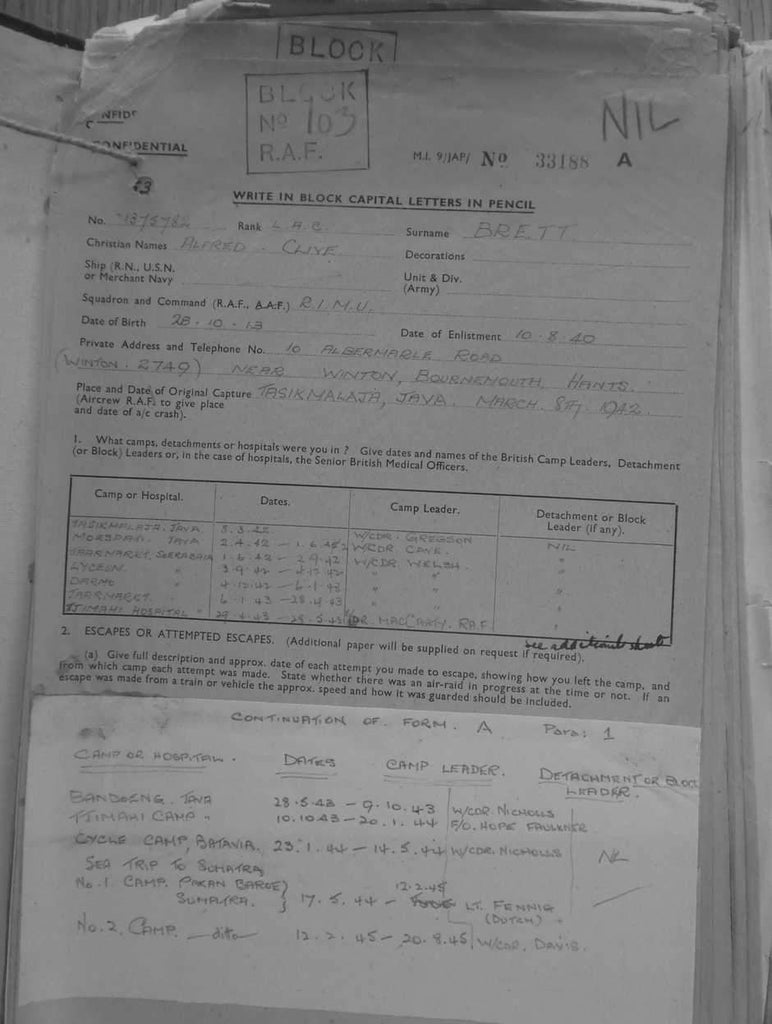 BLOCK
BLOCK
No 103
R.A.F.
NIL
CONFIDENTIAL
M.I. 9/JAP/ No 33188 A
WRITE IN BLOCK CAPITAL LETTERS IN PENCIL
No. 1375782 Rank L.A.C Surname BRETT
Christian Names ALFRED. CLIVE Decorations
Ship (R.N., U.S.N. or Merchant Navy Unit & Div. (Army)
Squadron and Command (R.A.F., A.A.F.) R.I.M.U.
Date of Birth 28.10.13 Date of Enlistment 10.8.40
Private Address and Telephone No. 10 ALBERMARLE ROAD
(WINTON. 2749) NEAR WINTON, BOURNEMOUTH, HANTS.
Place and Date of Original Capture TASIKMALAJA, JAVA. MARCH. 8TH, 1942.
(Aircrew R.A.F. to give place
and date of a/c crash).
1. What camps, detachments or hospitals were you in? Give dates and names of the British Camp Leaders, Detachment
(or Block) Leaders or, in the case of hospitals, the Senior British Medical Officers.
Camp or Hospital. Dates. Camp Leader. Detachment or Block Leader (if any).
TASIKMALAJA. JAVA 8.3.42
JAVA 2.4.42 – 1.6.42 W/CDR. GREGSON NIL
JAARMARKT. SOERABAIA 1.6.42 – 2.9.42 W/CDR CAVE. "
LYCEUM " 3.9.42 – 4.12.42 W/CDR. WELSH. "
DARMO " 4.12.42 – 6.1.43 " " "
JAARMARKT. " 6.1.43 – 28.4.43 " " "
TJIMAHI HOSPITAL " 29.4.43 – 28.5.43 W/CDR. MACCARTY. RAF "
see additional sheet
2. ESCAPES OR ATTEMPTED ESCAPES. (Additional paper will be supplied on request if required).
(a) Give full description and approx. date of each attempt you made to escape, showing how you left the camp, and
from which camp each attempt was made. State whether there was an air-raid in progress at the time or not. If an
escape was made from a train or vehicle the approx. speed and how it was guarded should be included.
CONTINUATION OF FORM. A Para: 1
CAMP OR HOSPITAL. DATES CAMP LEADER. DETACHMENT OR BLOCK LEADER.
BANDOENG. JAVA 28.5.43 – 9.10.43 W/CDR. NICHOLLS
TJIMAHI CAMP " 10.10.43 – 20.1.44 F/O. HOPE FAULKNER
CYCLE CAMP, BATAVIA. 23.1.44 – 14.5.44 W/CDR. NICHOLLS NIL
SEA TRIP TO SUMATRA
No. 1. CAMP. PAKAN BAROE) 12.2.45
SUMATRA. } 17.5.44 – LT. FENNIG
(DUTCH)
No. 2. CAMP. – ditto – 12.2.45 – 20.8.45 W/CDR. DAVIS.